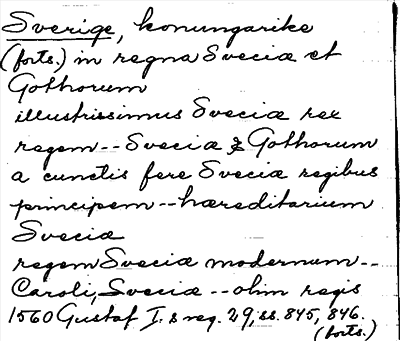 Sverige, konungarike
(forts.) in regna Sveciæ et
Gothorum
illustrissimus Sveciæ rex
regem -- Sveciæ & Gothorum
a cunctis fere Sveciæ regibus
principem -- hæreditarium
Sveciæ
regem Sveciæ modernum --
Caroli, Sveciæ -- olim regis
1560 Gustaf I. s reg. 29, ss. 845, 846.
(forts.)